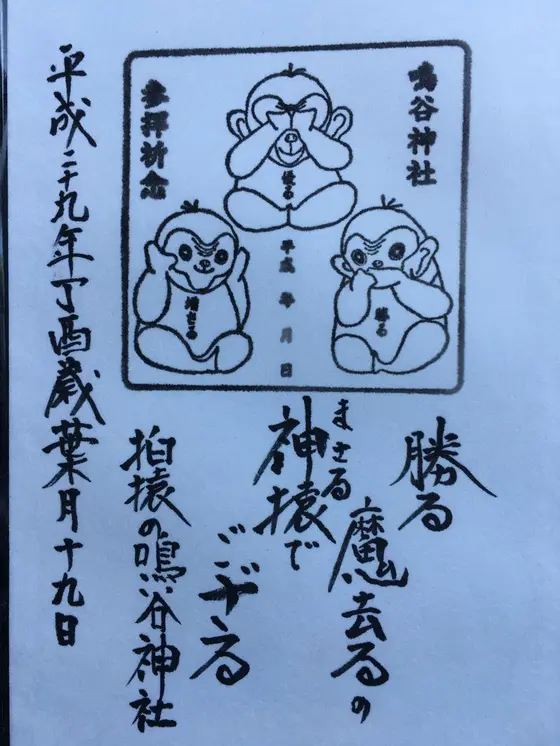 鳴谷神社
優る
参拝祈念
勝る
平成 年 月 日
増さる
勝る
魔去るの
まさる
神猿で
ござる
狛猿の鳴谷神社
平成二十九年丁酉歳葉月十九日